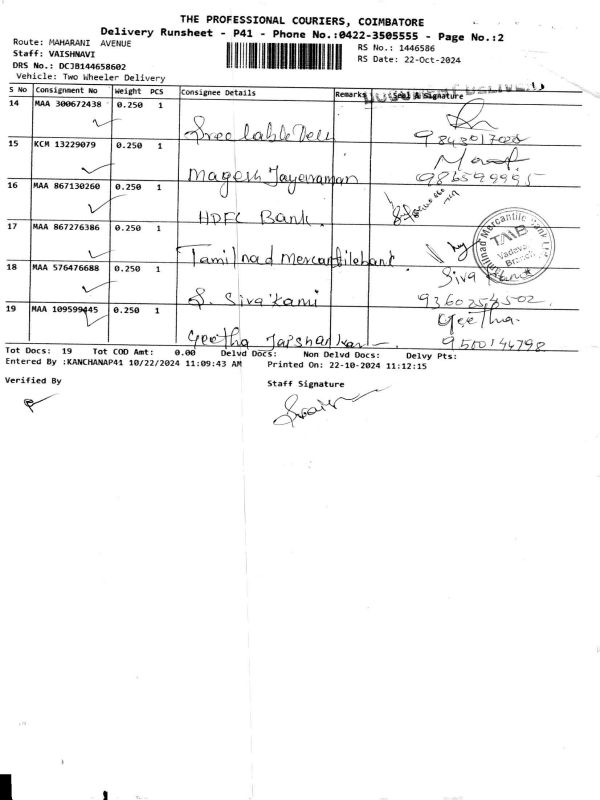 THE PROFESSIONAL COURIERS, COIMBATORE
Delivery Runsheet - P41 - Phone No.:0422-3505555 - Page No.:2
Route: MAHARANI AVENUE
RS No.: 1446586
Staff: VAISHNAVI
RS Date: 22-Oct-2024
DRS No.: DCJB144658602
Vehicle: Two Wheeler Delivery
S No Consignment No Weight PCS Consignee Details Remarks Seal & Signature
14 MAA 300672438 0.250 1
15 KCM 13229079 0.250 1
Magesh Jayaraman
16 MAA 867130260 0.250 1
HDFC Bank.
17 MAA 867276386 0.250 1
Tamilnad Mercantile bank.
Tamilnad Mercantile Bank Ltd
TMB
Vadavalli
Branch
18 MAA 576476688 0.250 1
S. Sivakami
Siva
9360254502.
19 MAA 109599445 0.250 1
Geetha Jaishankar
Geetha.
9500144798
Tot Docs: 19 Tot COD Amt: 0.00 Delvd Docs: Non Delvd Docs: Delvy Pts:
Entered By :KANCHANAP41 10/22/2024 11:09:43 AM Printed On: 22-10-2024 11:12:15
Verified By
Staff Signature